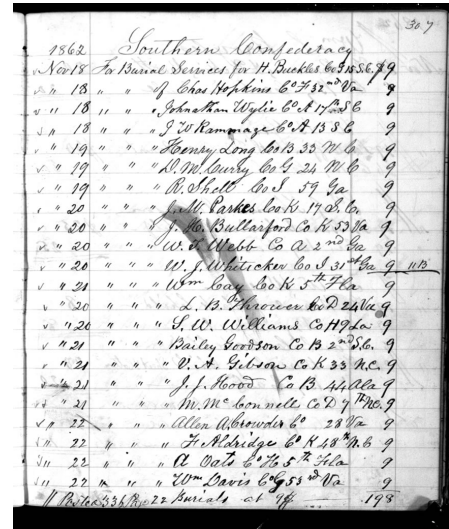 307
1862 Southern Confederacy
Nov 18 For Burial Services for H. Buckles Co I 15 S.C. $9
" 18 " " " Chas Hopkins Co F 32nd Va 9
" 18 " " " Johnathan Wylie Co A 17th S C 9
" 18 " " " J W Rammage Co A 13 S C 9
" 19 " " " Henry Long Co B 33 N C 9
" 19 " " " D. M. Curry Co G 24 N C 9
" 19 " " " R. Shell Co I 59 Ga 9
" 20 " " " J. W. Parkes Co K 17 S. C. 9
" 20 " " " J. H. Bullarford Co K 53 Va 9
" 20 " " " W. F. Webb Co A 2nd Ga 9
" 20 " " " W. J. Whiticker Co I 31st Ga 9
" 21 " " " Wm Cay Co K 5th Fla 9
" 20 " " " L. B. Thrower Co D 24 Va 9
" 20 " " " S. W. Williams Co H 9 La 9
" 21 " " " Bailey Goodson Co B 2nd S.C. 9
" 21 " " " V. A. Gibson Co K 33 N.C. 9
" 21 " " " J. J. Hood Co B 44 Ala 9
" 21 " " " M. McConnell Co D 7th N.C. 9
" 22 " " " Allen A. Crowder Co 28 Va 9
" 22 " " " F. Aldridge Co K 48th N.C 9
" 22 " " " A Oats Co H 5th Fla 9
" 22 " " " Wm Davis Co G 53rd Va 9
Posted 336 22 Burials at 9 198